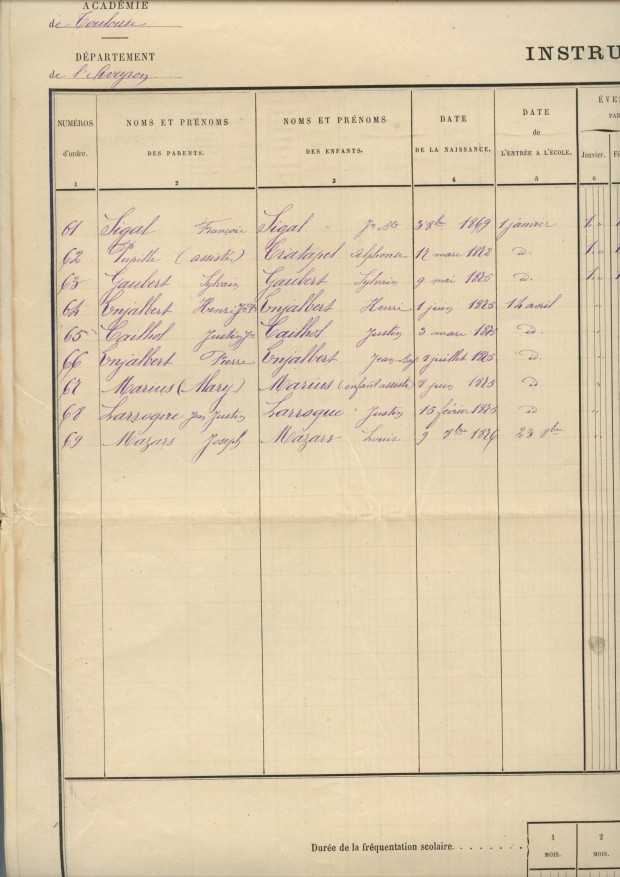 ACADÉMIE
de Toulouse
DÉPARTEMENT
de l'Aveyron
INSTRU
NUMÉROS d'ordre. NOMS ET PRÉNOMS DES PARENTS. NOMS ET PRÉNOMS DES ENFANTS. DATE DE LA NAISSANCE. DATE de L'ENTRÉE A L'ÉCOLE. ÉVE PAR Janvier. Fé
1 2 3 4 5 6
61 Sigal François Sigal Jn Bte 3 8bre 1869 1 janvier 1
62 Pupille (assistée) Alphonse 12 mars d. 1
63 Gaubert Sylvain Gaubert Sylvain 9 mai 1875 d. 1
64 Enjalbert Henri Enjalbert Henri 1 juin 1875 14 avril "
65 Cailhol Justin Cailhol Justin 3 mars 1875 d. "
66 Enjalbert Pierre Enjalbert Jean juillet 1875 d "
67 Marius (Mary) Marius (enfant assisté) juin 1875 d "
68 Larroque Jean Justin Larroque Justin 15 février 1875 d "
69 Mazars Joseph Mazars Louis 9 8bre 1876 23 8bre "
Durée de la fréquentation scolaire. . . . . . . 1 MOIS. 2 MOIS.